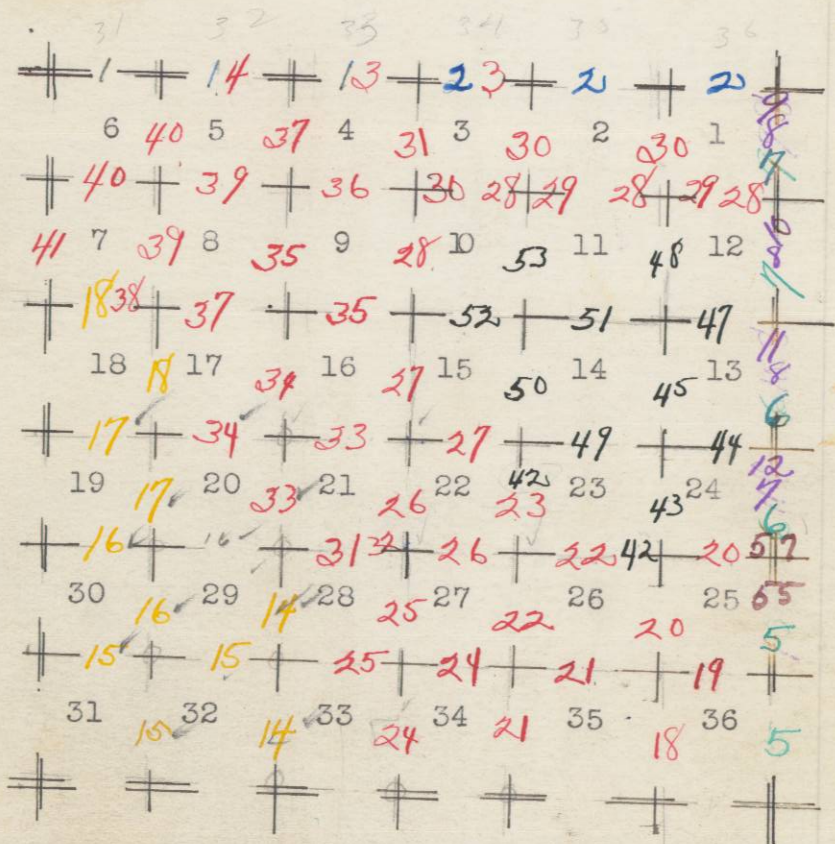 31 32 33 34 35 36
1 14 13 23 2 2
9
6 40 5 37 4 31 3 30 2 30 1 8
7
40 39 36 30 28 29 28 29 28
10
41 7 39 8 35 9 28 10 53 11 48 12 8
7
18 38 37 35 52 51 47
11
18 18 17 34 16 27 15 50 14 45 13 8
6
17 34 33 27 49 44
12
42
19 17 20 33 21 26 22 23 23 43 24 7
6
16 16 31 32 26 22 42 20 57
30 16 29 14 28 25 27 22 26 20 25 55
5
15 15 25 24 21 19
31 15 32 14 33 24 34 21 35 18 36 5